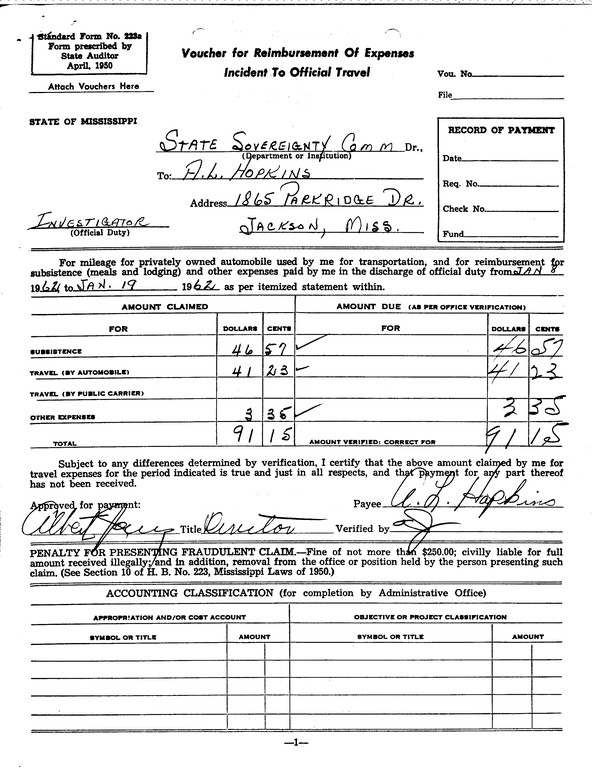 Standard Form No. 223a
Form prescribed by
State Auditor
April, 1950
Attach Vouchers Here
Voucher for Reimbursement Of Expenses
Incident To Official Travel
Vou. No.
File
STATE OF MISSISSIPPI
STATE SOVEREIGNTY COMM Dr.,
(Department or Institution)
To: A.L. HOPKINS
Address 1865 PARKRIDGE DR.
INVESTIGATOR
(Official Duty)
JACKSON, MISS.
RECORD OF PAYMENT
Date
Req. No.
Check No.
Fund
For mileage for privately owned automobile used by me for transportation, and for reimbursement for
subsistence (meals and lodging) and other expenses paid by me in the discharge of official duty from JAN 8
1962 to JAN. 19 1962 as per itemized statement within.
AMOUNT CLAIMED AMOUNT DUE (AS PER OFFICE VERIFICATION)
FOR DOLLARS CENTS FOR DOLLARS CENTS
SUBSISTENCE 46 57 46 57
TRAVEL (BY AUTOMOBILE) 41 23 41 23
TRAVEL (BY PUBLIC CARRIER)
OTHER EXPENSES 3 35 3 35
TOTAL 91 15 AMOUNT VERIFIED: CORRECT FOR 91 15
Subject to any differences determined by verification, I certify that the above amount claimed by me for
travel expenses for the period indicated is true and just in all respects, and that payment for any part thereof
has not been received.
Approved for payment: Payee A. L. Hopkins
Albert Jones Title Director Verified by
PENALTY FOR PRESENTING FRAUDULENT CLAIM.—Fine of not more than $250.00; civilly liable for full
amount received illegally; and in addition, removal from the office or position held by the person presenting such
claim. (See Section 10 of H. B. No. 223, Mississippi Laws of 1950.)
ACCOUNTING CLASSIFICATION (for completion by Administrative Office)
APPROPRIATION AND/OR COST ACCOUNT OBJECTIVE OR PROJECT CLASSIFICATION
SYMBOL OR TITLE AMOUNT SYMBOL OR TITLE AMOUNT
—1—